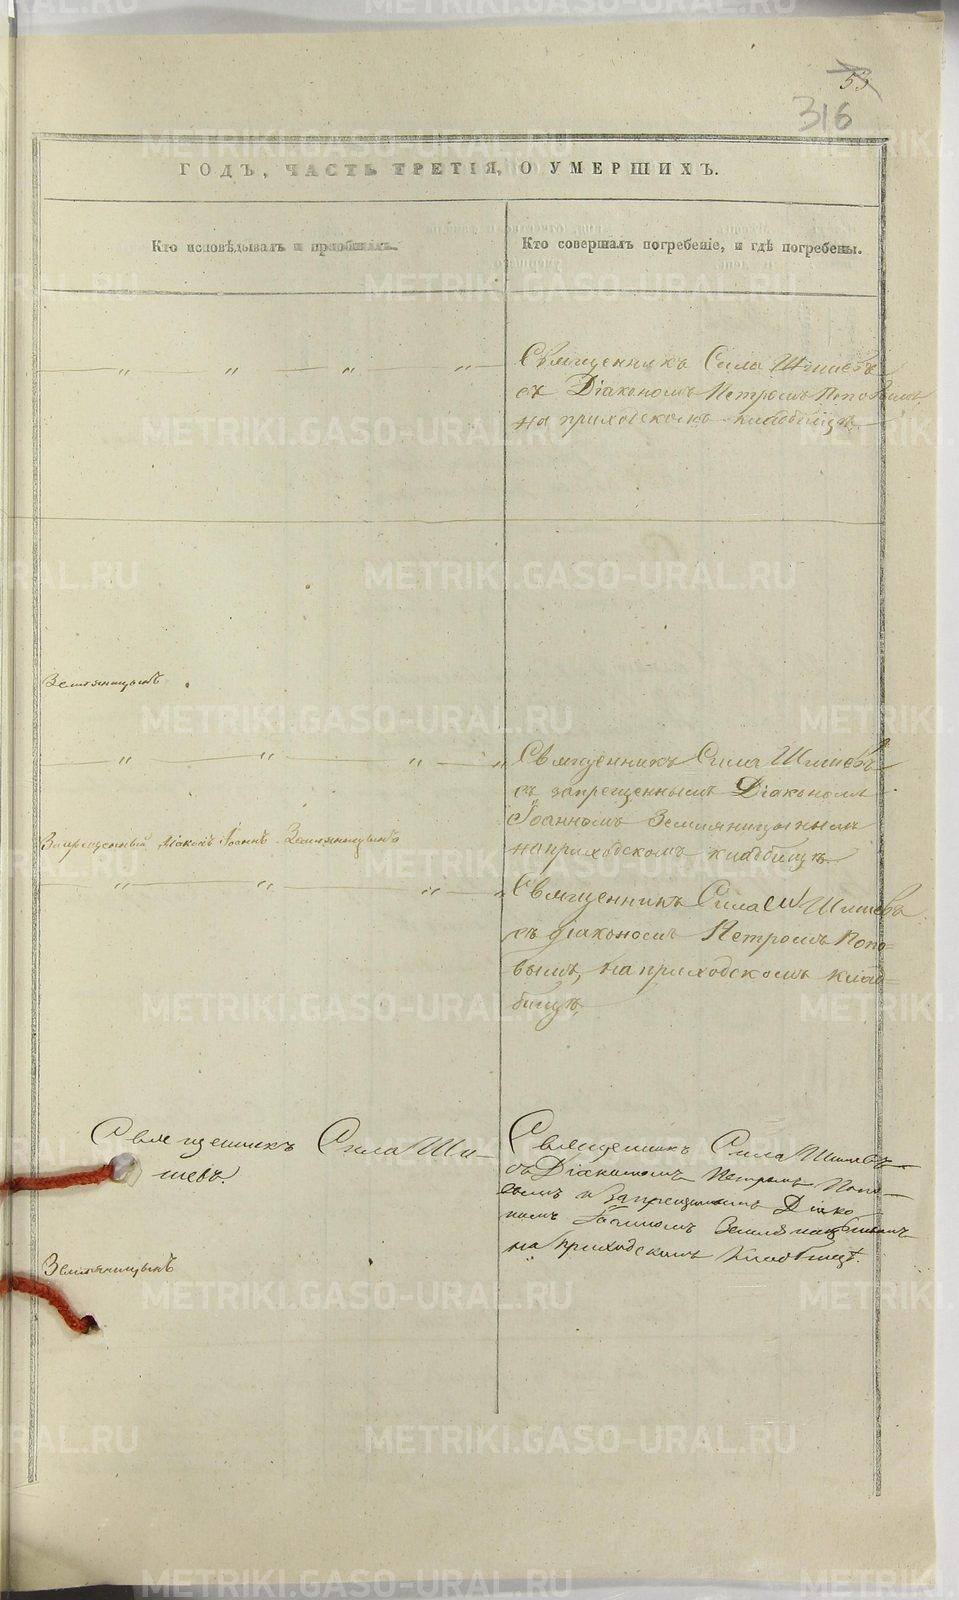 53
316
ГОДЪ, ЧАСТЬ ТРЕТІЯ, О УМЕРШИХЪ.
Кто исповѣдывалъ и пріобщалъ.
Кто совершалъ погребеніе, и гдѣ погребены.
Священникъ Сила Шишевъ
съ Діакономъ Петромъ Поповымъ
на приходскомъ кладбищѣ
Земляницынъ
Священникъ Сила Шишевъ
съ запрещеннымъ Діакономъ
Іоанномъ Земляницынымъ
на приходскомъ кладбищѣ
Запрещенный Діаконъ Іоаннъ Земляницынъ
Священникъ Сила Шишевъ
съ діакономъ Петромъ Попо-
вымъ, на приходскомъ клад-
бищѣ,
Священникъ Сила Ши-
шевъ.
Священникъ Сила Шишевъ
съ Діакономъ Петромъ Попо-
вымъ и запрещеннымъ Діако
номъ Іоанномъ Земляницынымъ
на приходскомъ кладбищѣ.
Земляницынъ
METRIKI.GASO-URAL.RU